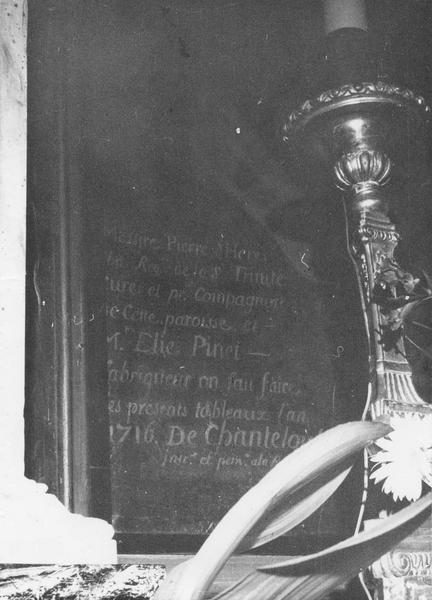 Pierre d'Here
Rel. de la S. Trinité
Curé et pr. Compagnon
de Cette paroisse et
M. Elie Pinet —
fabriqueur on fau faire
les presents tableaux l'an
1716. De Chantelou
et pein.